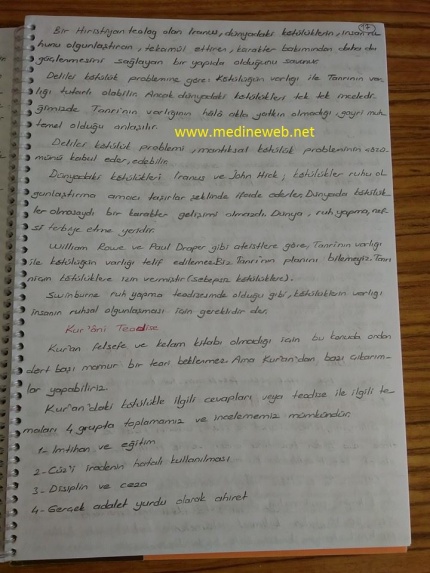 17
Bir Hıristiyan teolog olan Iraneus, dünyadaki kötülüklerin, insan ru-
hunu olgunlaştıran, tekamül ettiren, karakter bakımından daha da
güçlenmesini sağlayan bir yapıda olduğunu savunur.
Delilci kötülük problemine göre: Kötülüğün varlığı ile Tanrının var-
lığı tutarlı olabilir. Ancak dünyadaki kötülükleri tek tek inceledi-
ğimizde Tanrı'nın varlığının hâlâ akla yatkın olmadığı, gayri muh-
temel olduğu anlaşılır.
www.medineweb.net
Delilci kötülük problemi, mantıksal kötülük probleminin çözü-
münü kabul eder, edebilir.
Dünyadaki kötülükleri Iranus ve John Hick; kötülükler ruhu ol-
gunlaştırma amacı taşırlar şeklinde ifade ederler. Dünyada kötülük-
ler olmasaydı bir karakter gelişimi olmazdı. Dünya, ruh yapma, nef-
si terbiye etme yeridir.
William Rowe ve Paul Draper gibi ateistlere göre, Tanrı'nın varlığı
ile kötülüğün varlığı telif edilemez. Biz Tanrı'nın planını bilemeyiz. Tanrı
niçin kötülüklere izin vermiştir (sebepsiz kötülükler).
Swinburne ruh yapma teodisesinde olduğu gibi, kötülüklerin varlığı
insanın ruhsal olgunlaşması için gereklidir der.
Kur'âni Teodise
Kur'an felsefe ve kelam kitabı olmadığı için bu konuda ondan
dört başı mamur bir teori beklenmez. Ama Kur'an'dan bazı çıkarım-
lar yapabiliriz.
Kur'an'daki kötülükle ilgili cevapları veya teodise ile ilgili te-
maları 4 grupta toplamamız ve incelememiz mümkündür.
1- İmtihan ve eğitim
2- Cüz'i iradenin hatalı kullanılması
3- Disiplin ve ceza
4- Gerçek adalet yurdu olarak ahiret